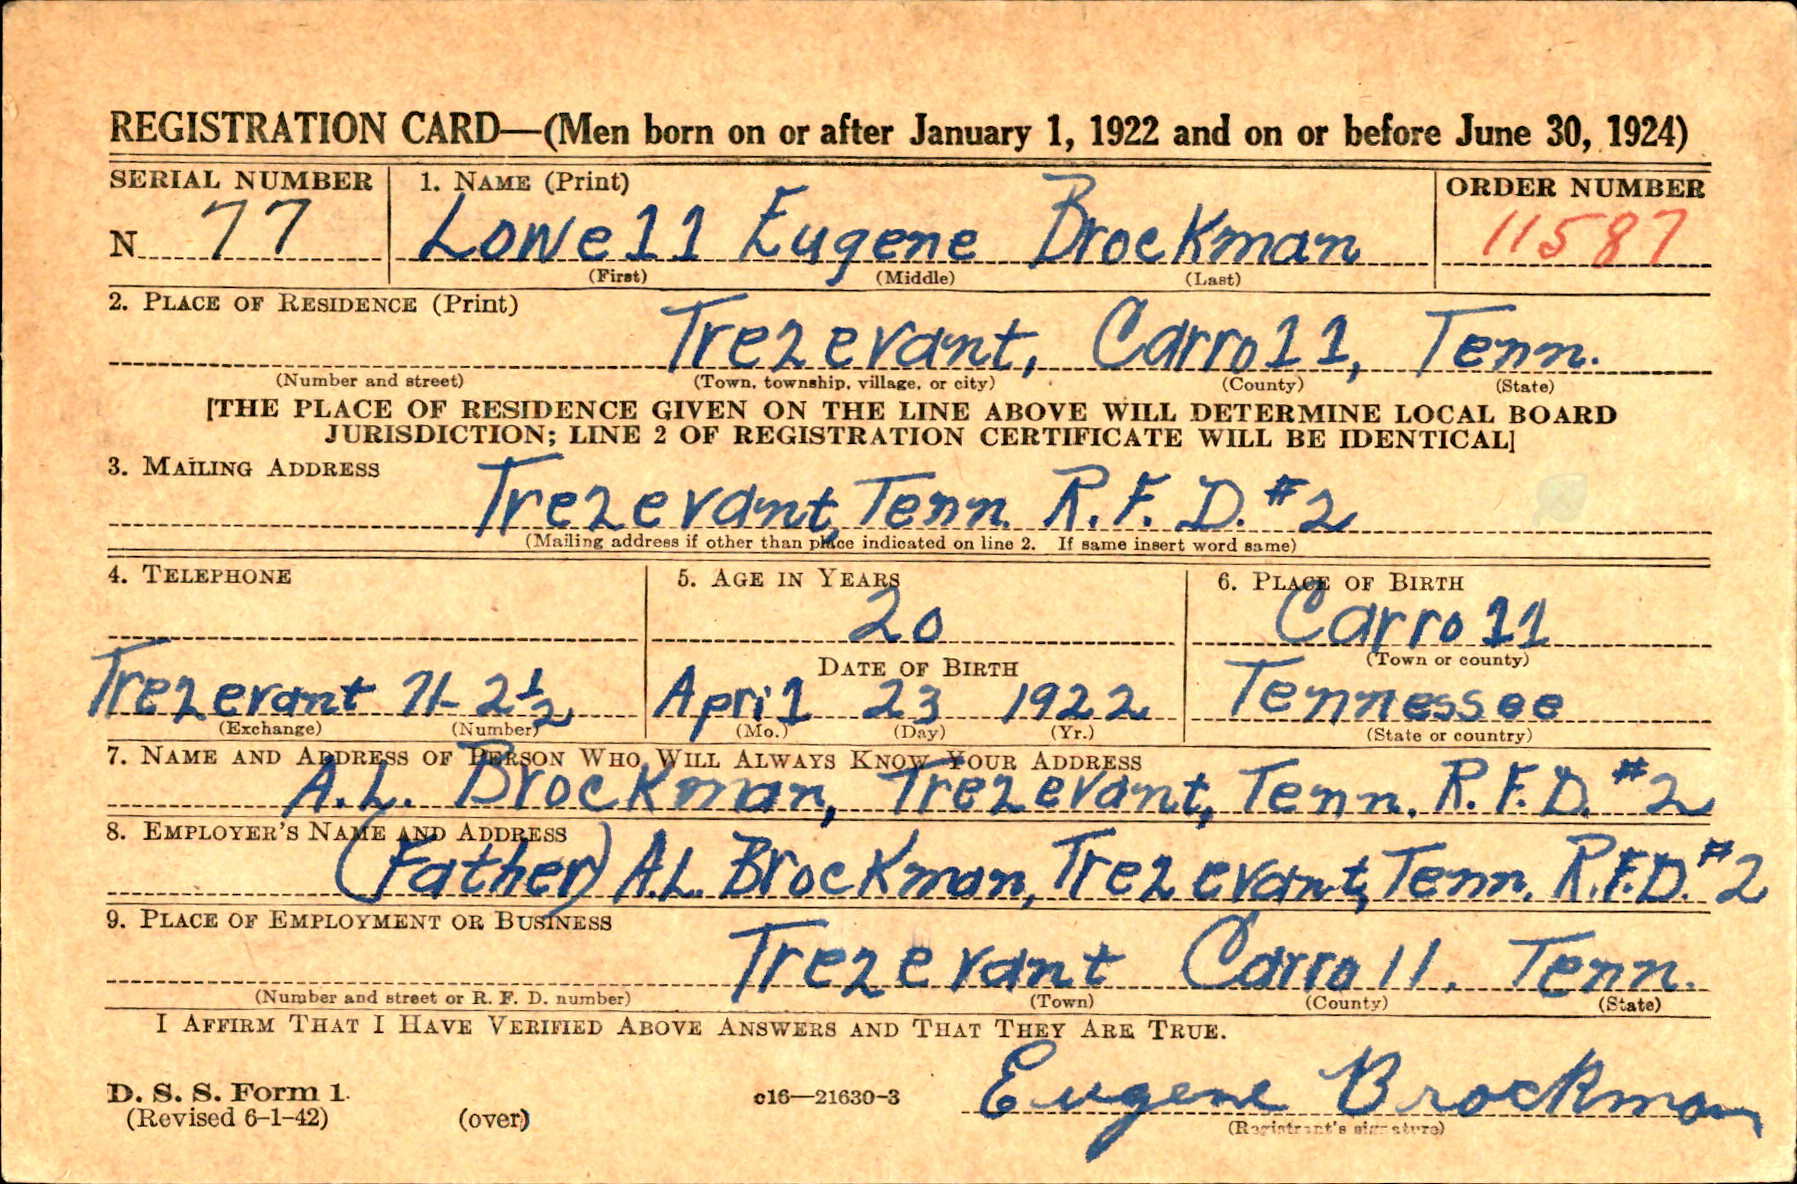 REGISTRATION CARD—(Men born on or after January 1, 1922 and on or before June 30, 1924)
SERIAL NUMBER 1. NAME (Print) ORDER NUMBER
N 77 Lowell Eugene Brockman 11587
(First) (Middle) (Last)
2. PLACE OF RESIDENCE (Print)
Trezevant, Carroll, Tenn.
(Number and street) (Town, township, village, or city) (County) (State)
[THE PLACE OF RESIDENCE GIVEN ON THE LINE ABOVE WILL DETERMINE LOCAL BOARD
JURISDICTION; LINE 2 OF REGISTRATION CERTIFICATE WILL BE IDENTICAL]
3. MAILING ADDRESS
Trezevant, Tenn. R.F.D. #2
(Mailing address if other than place indicated on line 2. If same insert word same)
4. TELEPHONE 5. AGE IN YEARS 6. PLACE OF BIRTH
20 Carroll
DATE OF BIRTH (Town or county)
Trezevant 71-2½ April 23 1922 Tennessee
(Exchange) (Number) (Mo.) (Day) (Yr.) (State or country)
7. NAME AND ADDRESS OF PERSON WHO WILL ALWAYS KNOW YOUR ADDRESS
A.L. Brockman, Trezevant, Tenn. R.F.D. #2
8. EMPLOYER'S NAME AND ADDRESS
(Father) A.L. Brockman, Trezevant, Tenn. R.F.D. #2
9. PLACE OF EMPLOYMENT OR BUSINESS
Trezevant Carroll. Tenn.
(Number and street or R. F. D. number) (Town) (County) (State)
I AFFIRM THAT I HAVE VERIFIED ABOVE ANSWERS AND THAT THEY ARE TRUE.
D. S. S. Form 1 c16—21630-3 Eugene Brockman
(Revised 6-1-42) (over) (Registrant's signature)